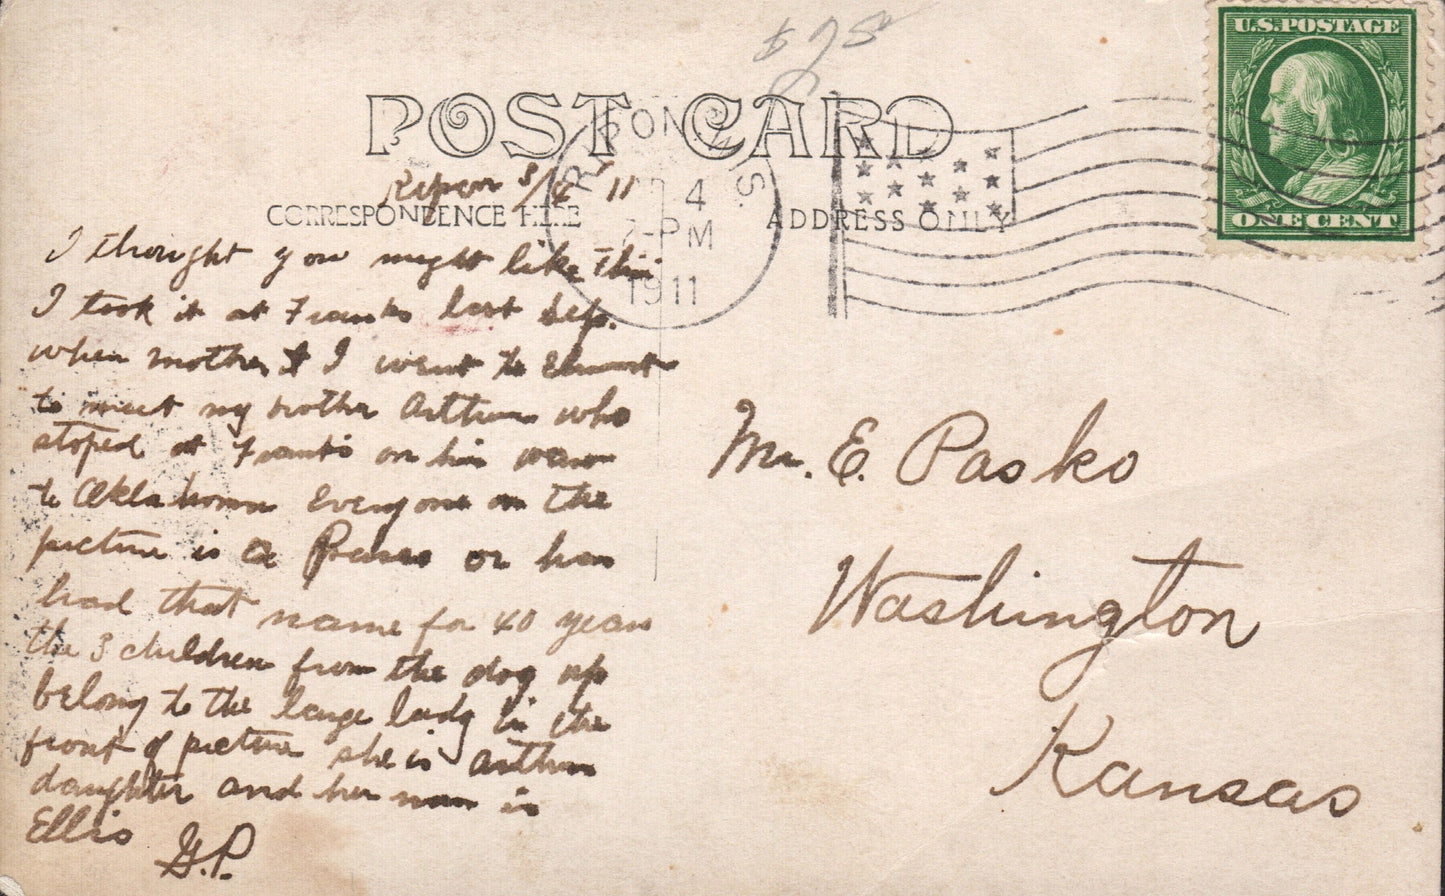 $
U.S.POSTAGE
ONE CENT
POST CARD
RIPON WIS.
4
-PM
1911
Ripon
CORRESPONDENCE HERE
ADDRESS ONLY
I thought you might like this
I took it at Franks last Sep.
when mother & I went to
to meet my brother Arthur who
stoped at Franks on his way
to Oklahoma Everyone on the
picture is a or has
had that name for 40 years
the 3 children from the dog up
belong to the large lady in the
front of picture she is Arthurs
daughter and her name is
Ellis G.P.
Mr. E. Pasko
Washington
Kansas